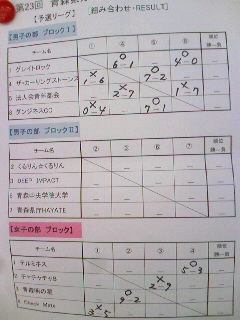 第23回 青森
【予選リーグ】 [組み合わせ・RESULT]
【男子の部 ブロックⅠ】
チーム名 ① ② ③ ④ 順位 勝ー負
1 グレイトロック ○ 6-1 ○ 4-0
4 ザ・カーリングストーンズ × 1-6 ○ 7-2
5 法人会青年部会 × 2-7 × 1-7
8 ダンジネスCC × 0-4 ○ 7-1
【男子の部 ブロックⅡ】
チーム名 ① ② ③ ④ 順位 勝ー負
2 くるりん☆くるりん
3 DEEP IMPACT
6 青森中央学院大学
7 青森県庁HAYATE
【女子の部 ブロック】
チーム名 ① ② ③ ④ 順位 勝ー負
1 チルミネス ○ 5-3
× 2-9
○ 9-2
× 3-5